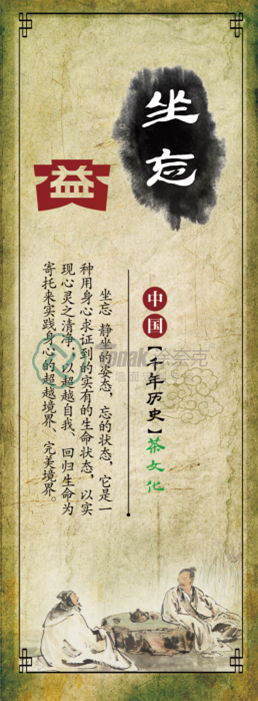 坐忘
益
中国【千年历史】茶文化
坐忘 静坐的姿态，忘的状态，它是一
种用身心求证到的实有的生命状态，以实
现心灵之清净；以超越自我、回归生命为
寄托来实践身心的超越境界、完美境界。